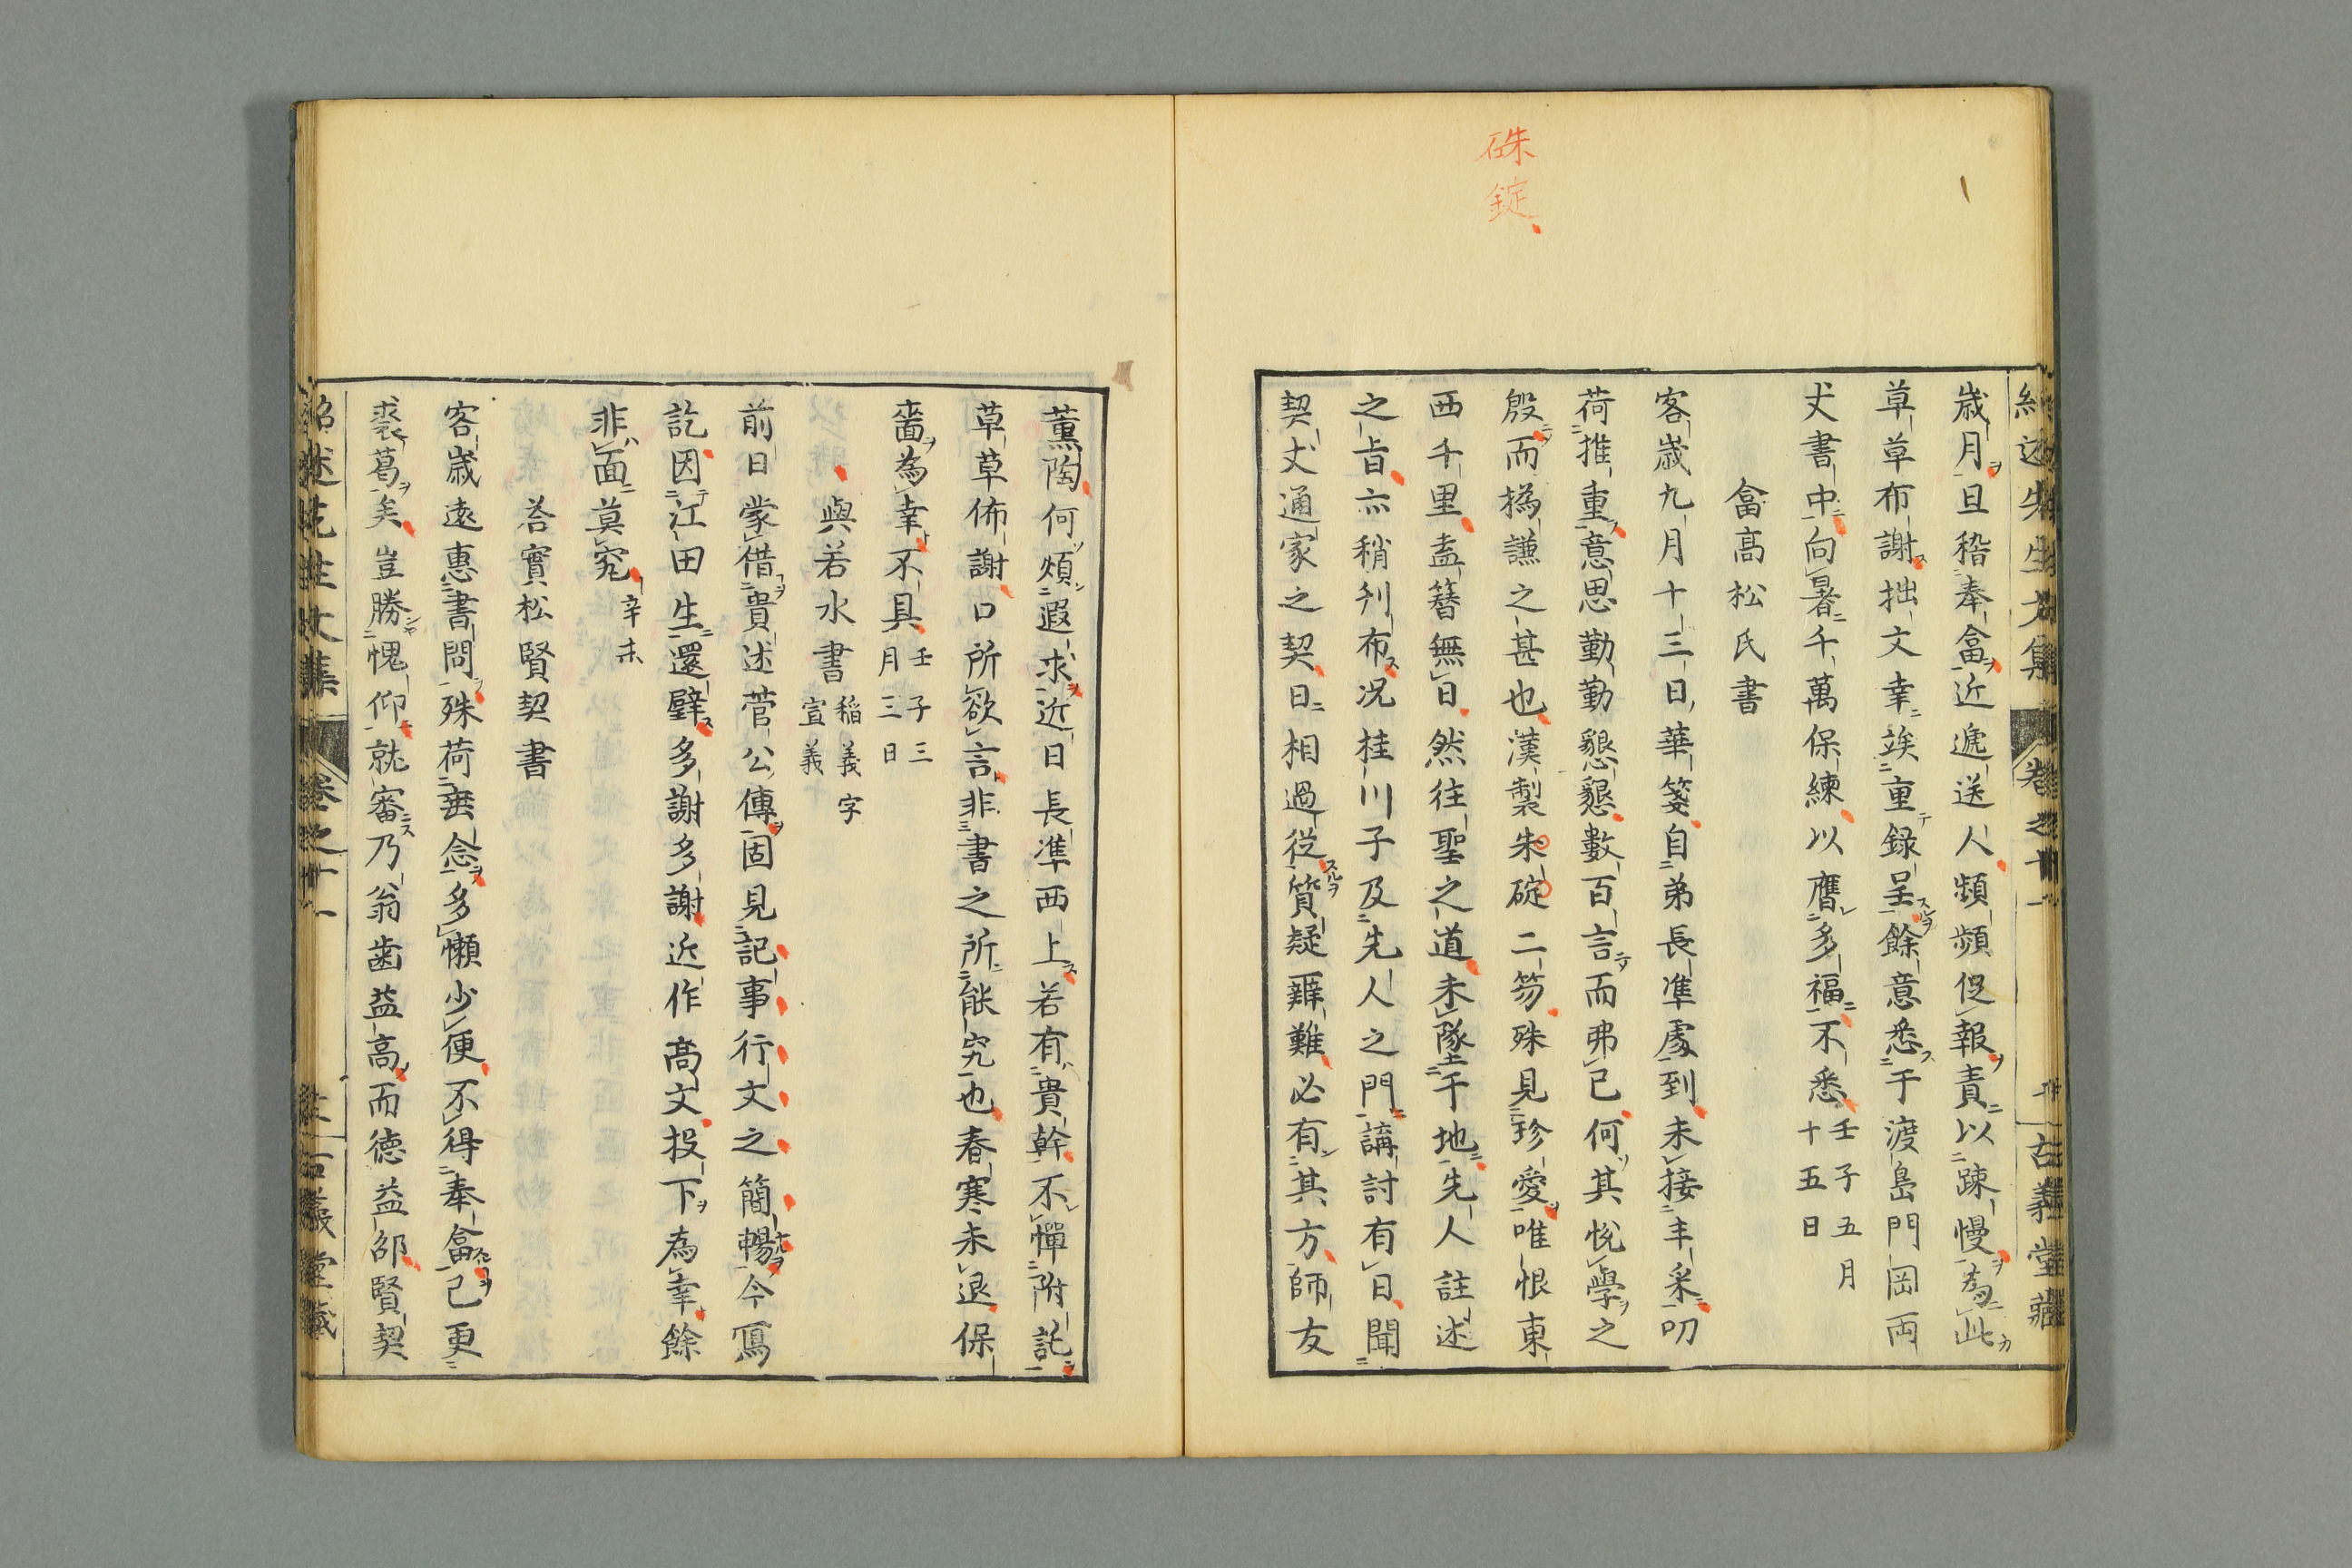 硃
錠
歳月旦稽奉畣近遞送人頻頻促報責以踈慢為此
草草布謝拙文幸竢重録呈餘意悉于渡島門岡両
丈書中向暑千萬保練以膺多福不悉壬子五月
十五日
畣高松氏書
客歳九月十三日華箋自弟長準處到未接丰采叨
荷推重意思勤勤懇懇數百言而弗已何其悦學之
殷而撝謙之甚也漢製朱碇二笏殊見珍愛唯恨東
西千里盍簪無日然往聖之道未墜于地先人註述
之旨亦稍刊布况桂川子及先人之門講討有日聞
契丈通家之契日相過從質疑辨難必有其方師友
薫陶何煩遐求近日長準西上若有貴幹不憚附託
草草佈謝口所欲言非書之所能究也春寒未退保
嗇為幸不具壬子三
月三日
與若水書稲義字
宣義
前日蒙借貴述菅公傳固見記事行文之簡暢今寫
訖因江田生還璧多謝多謝近作高文投下為幸餘
非面莫究辛未
荅實松賢契書
客歳遠惠書問殊荷垂念多懶少便不得奉畣已更
裘葛矣豈勝愧仰就審乃翁歯益高而徳益邵賢契
紹述先生文集 卷之十一 古義堂藏